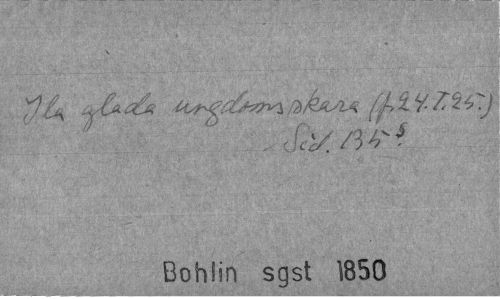 Ila glada ungdomsskara (f. 24.I.25.)
Sid. 135 s.
Bohlin sgst 1850